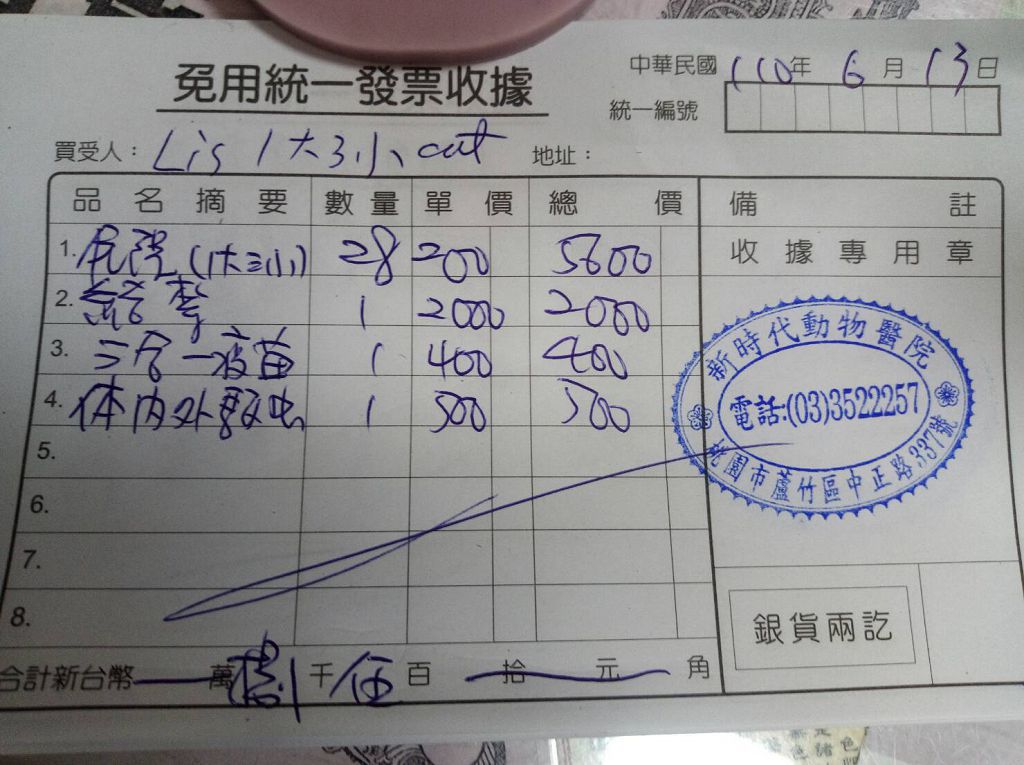 免用統一發票收據
中華民國 110年 6月 13日
統一編號
買受人： Lis 1大3小 cat 地址：
品名摘要 數量 單價 總價 備註
收據專用章
1. 住院 (1大3小) 28 200 5600
2. 結紮 1 2000 2000
3. 三合一疫苗 1 400 400
4. 体内外驅虫 1 500 500
5.
6.
7.
8.
新時代動物醫院
電話:(03)3522257
桃園市蘆竹區中正路337號
銀貨兩訖
合計新台幣 萬 捌千 伍百 拾 元 角